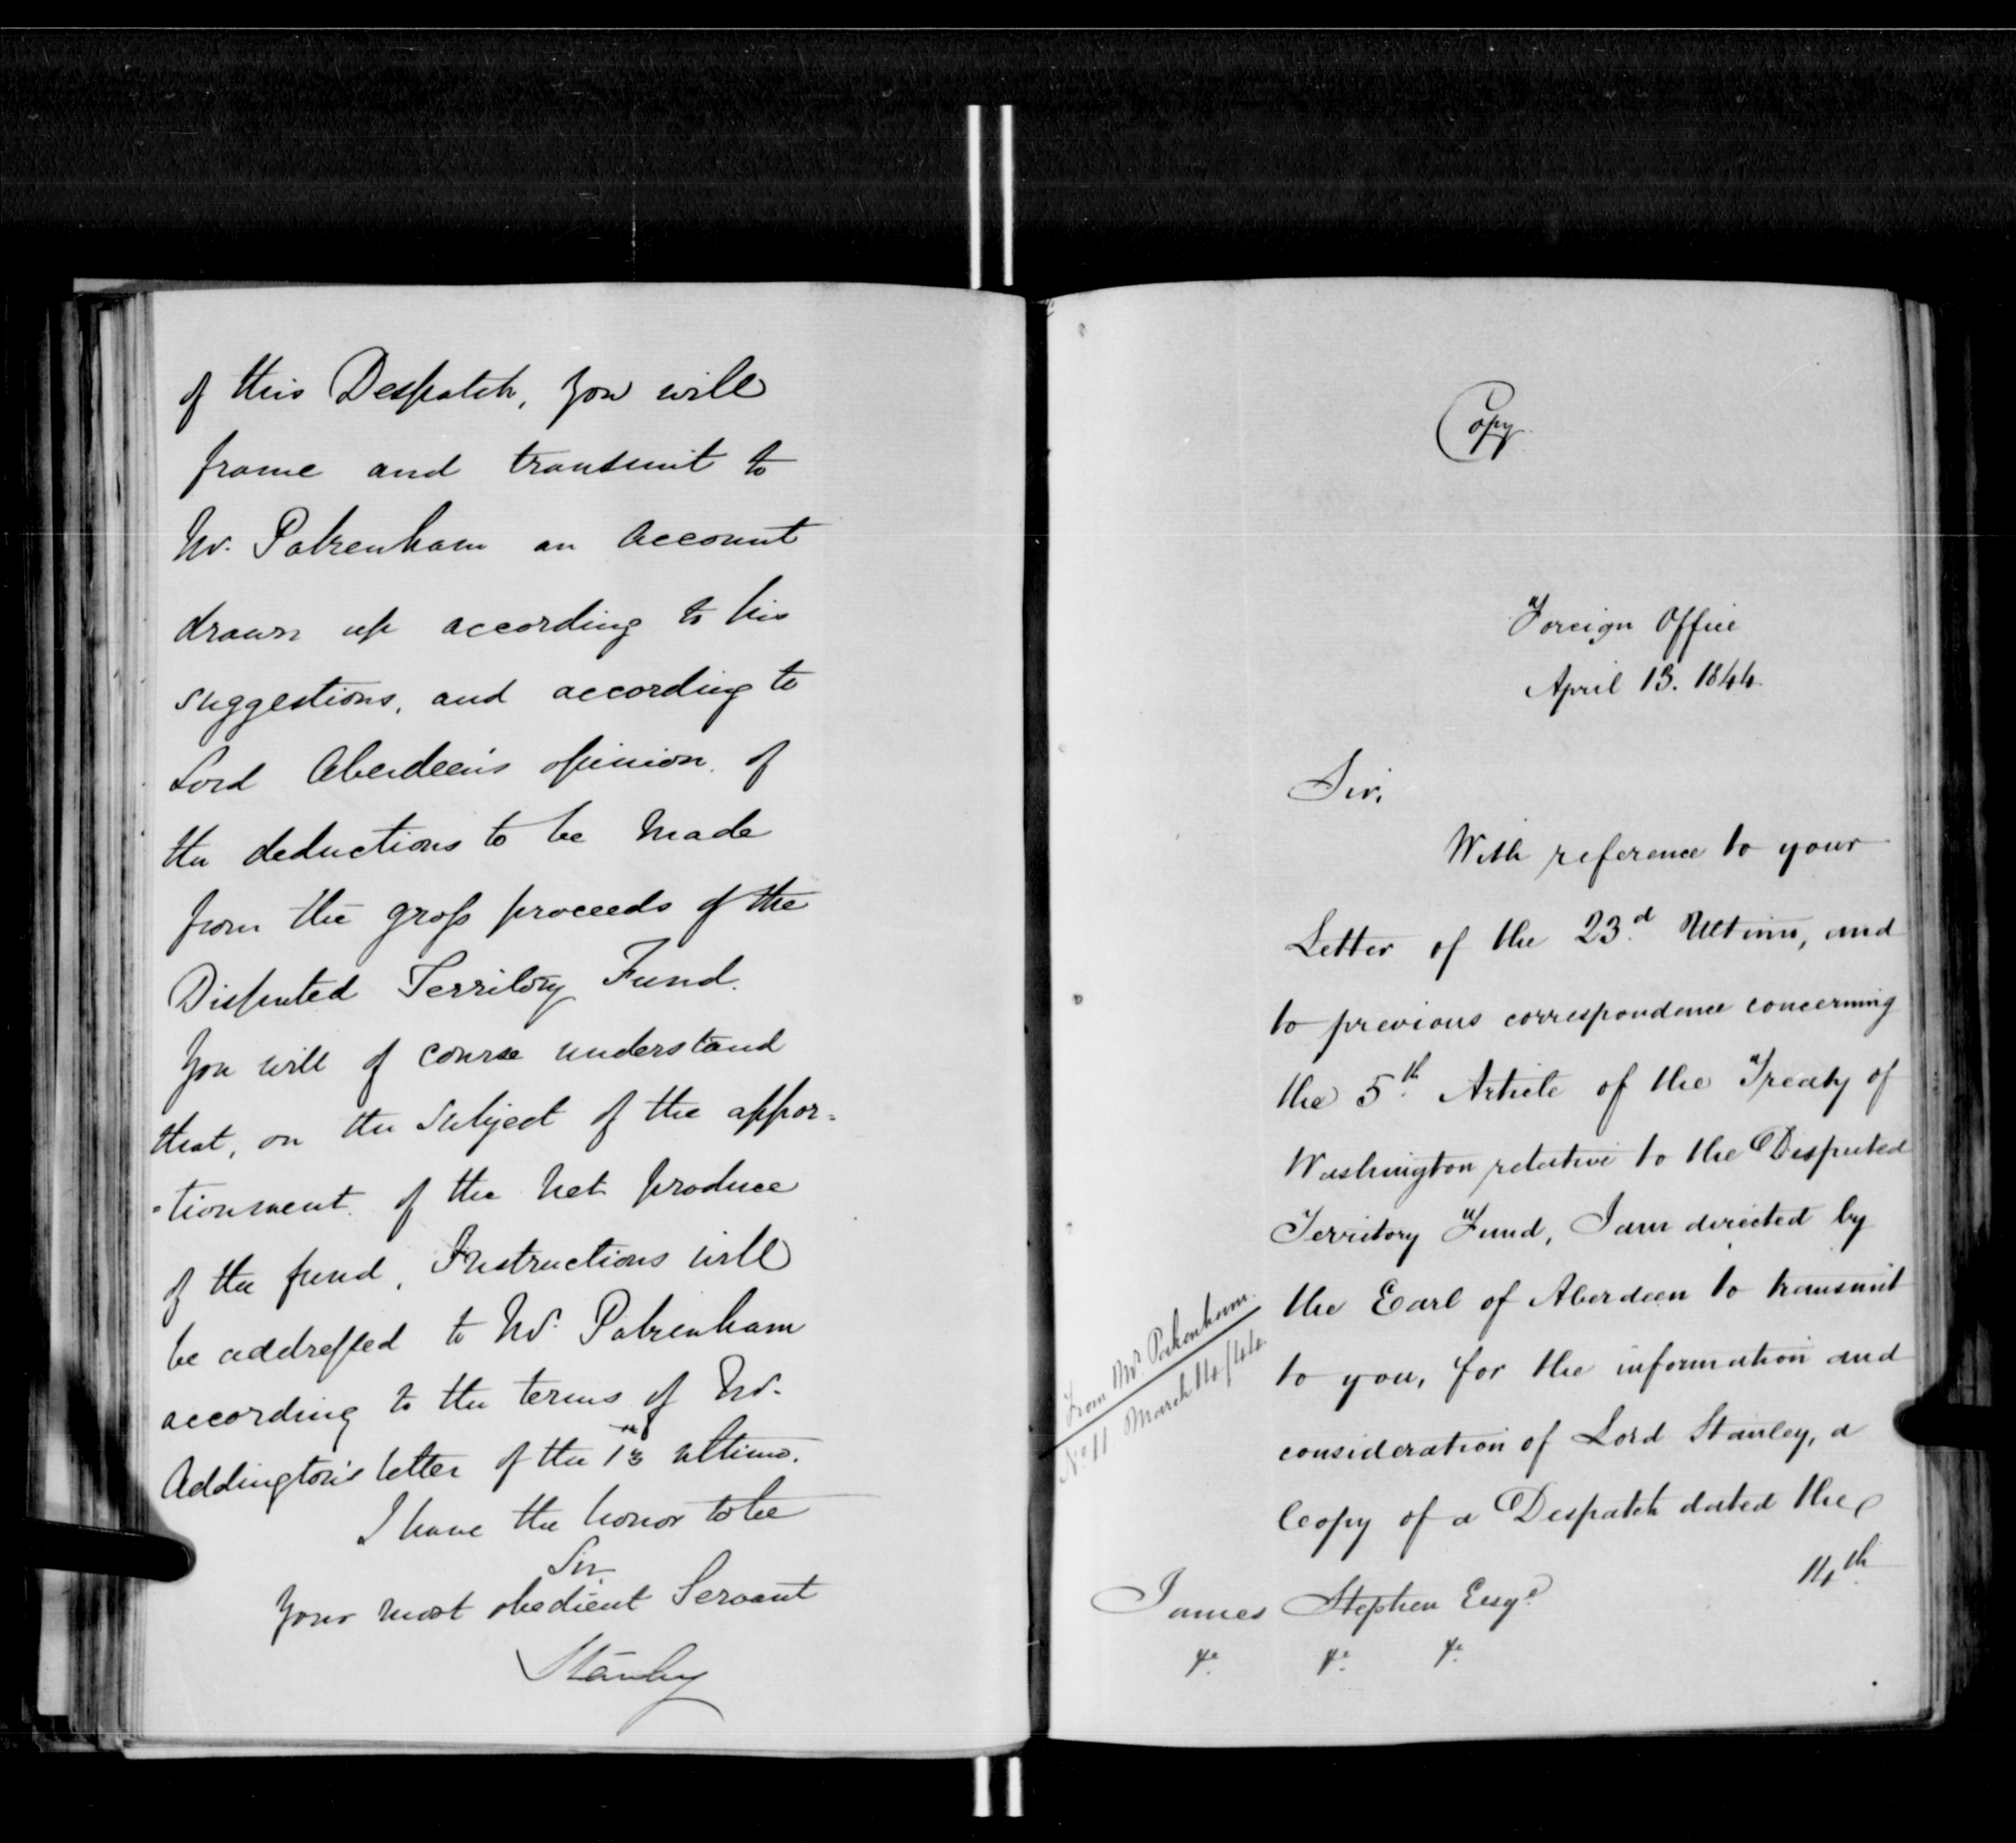 of this Despatch, you will
frame and transmit to
Mr. Pakenham an account
drawn up according to his
suggestions, and according to
Lord Aberdeen's opinion of
the deductions to be made
from the gross proceeds of the
Disputed Territory Fund.
You will of course understand
that, on the subject of the appor=
=tionment of the net produce
of the fund, Instructions will
be addressed to Mr. Pakenham
according to the terms of Mr.
Addington's letter of the 13th ultimo.
I have the honor to be
Sir
Your most obedient Servant
Stanley
Copy
Foreign Office
April 13. 1844.
Sir,
With reference to your
Letter of the 23.d Ultimo, and
to previous correspondence concerning
the 5.th Article of the Treaty of
Washington relative to the Disputed
Territory Fund, I am directed by
the Earl of Aberdeen to transmit
to you, for the information and
consideration of Lord Stanley, a
Copy of a Despatch dated the
14th
From Mr. Pakenham.
No. 11 March 14/44.
James Stephen Esqe.
&c. &c. &c.